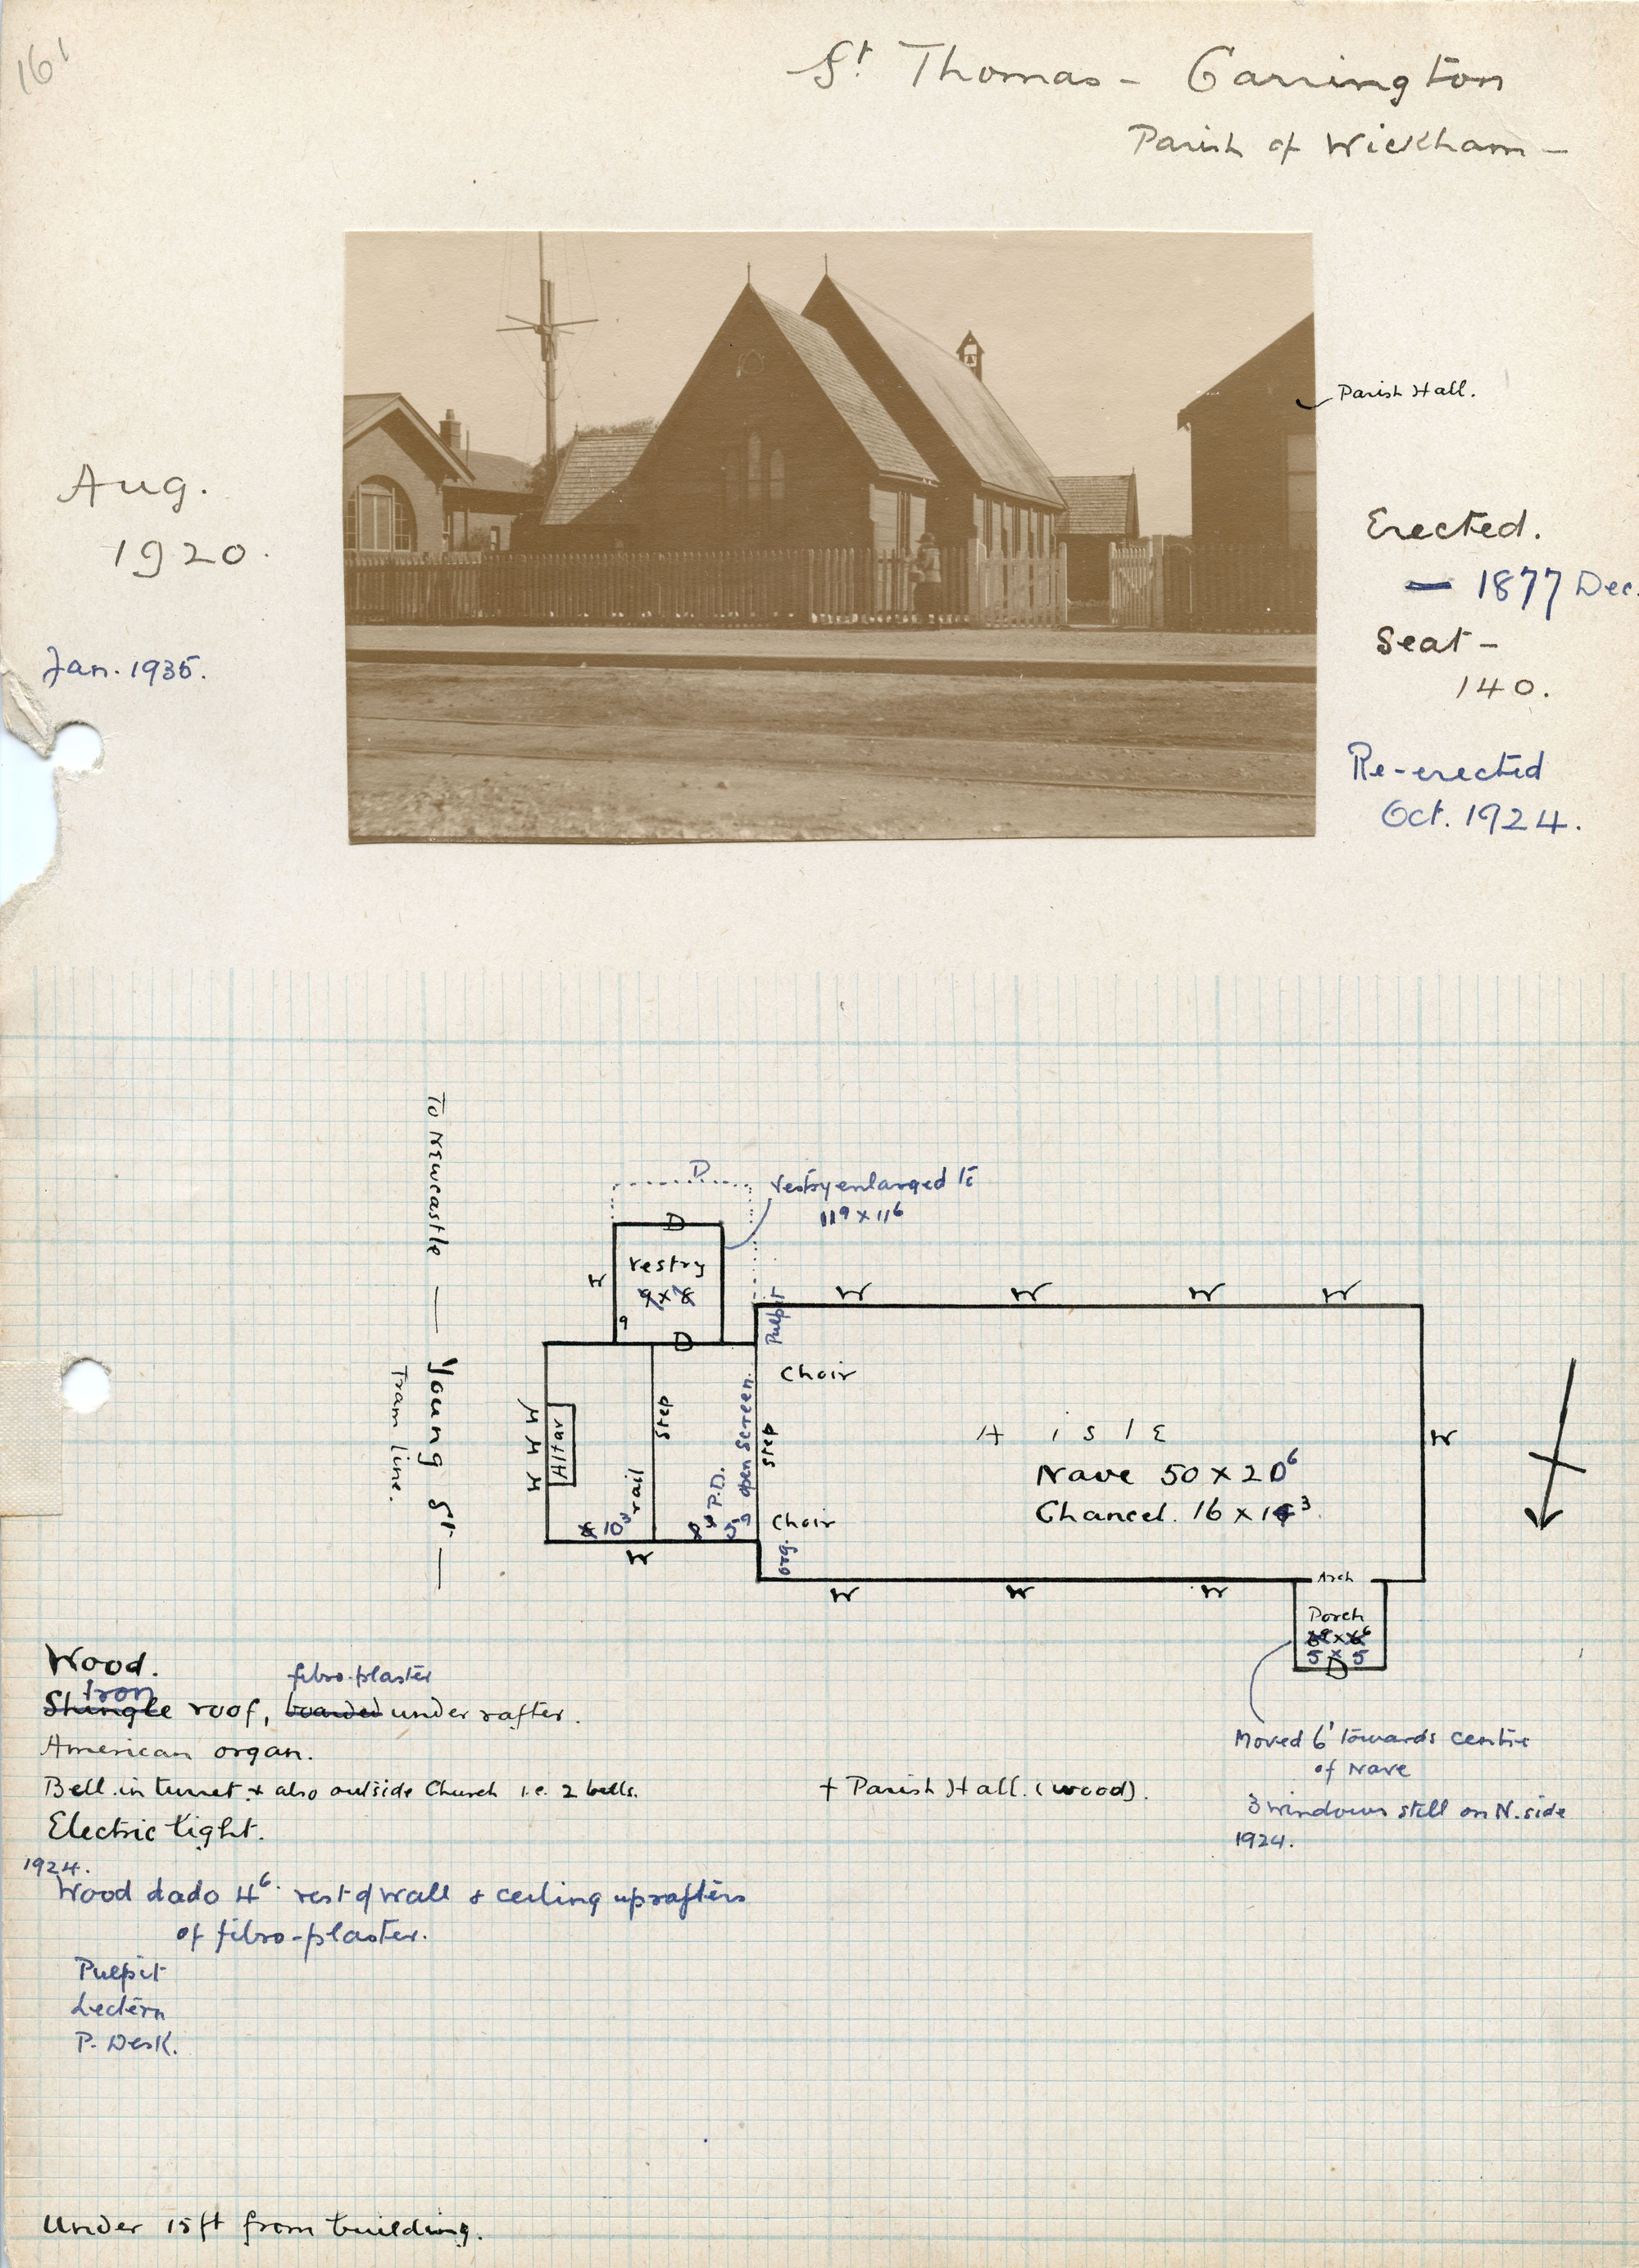 161
St Thomas - Carrington
Parish of Wickham -
Parish Hall.
Aug.
1920.
Erected.
- 1877 Dec.
Seat -
140.
Jan. 1935.
Re-erected
Oct. 1924.
To Newcastle — Young St. —
Tram line.
D
Vestry enlarged to
11⁹ x 11⁶
D
Vestry
9 x 8
W
9
D
W W W W
Pulpit
Choir
W W W
Altar
Step
rail
10³
P.D.
open Screen.
Step
Aisle
Nave 50 x 20⁶
Chancel. 16 x 14³
W
Choir
org.
W
W W W
Arch
Porch
5 x 5
D
Wood.
Iron fibro-plaster
Shingle roof, boarded under rafter.
American organ.
Bell in turret & also outside Church i.e. 2 bells.
+ Parish Hall. (wood).
Electric light.
Moved 6' towards centre
of Nave
3 windows still on N. side
1924.
1924.
Wood dado 4⁶. rest of wall & ceiling up rafters
of fibro-plaster.
Pulpit
Lectern
P. Desk.
Under 15 ft from building.